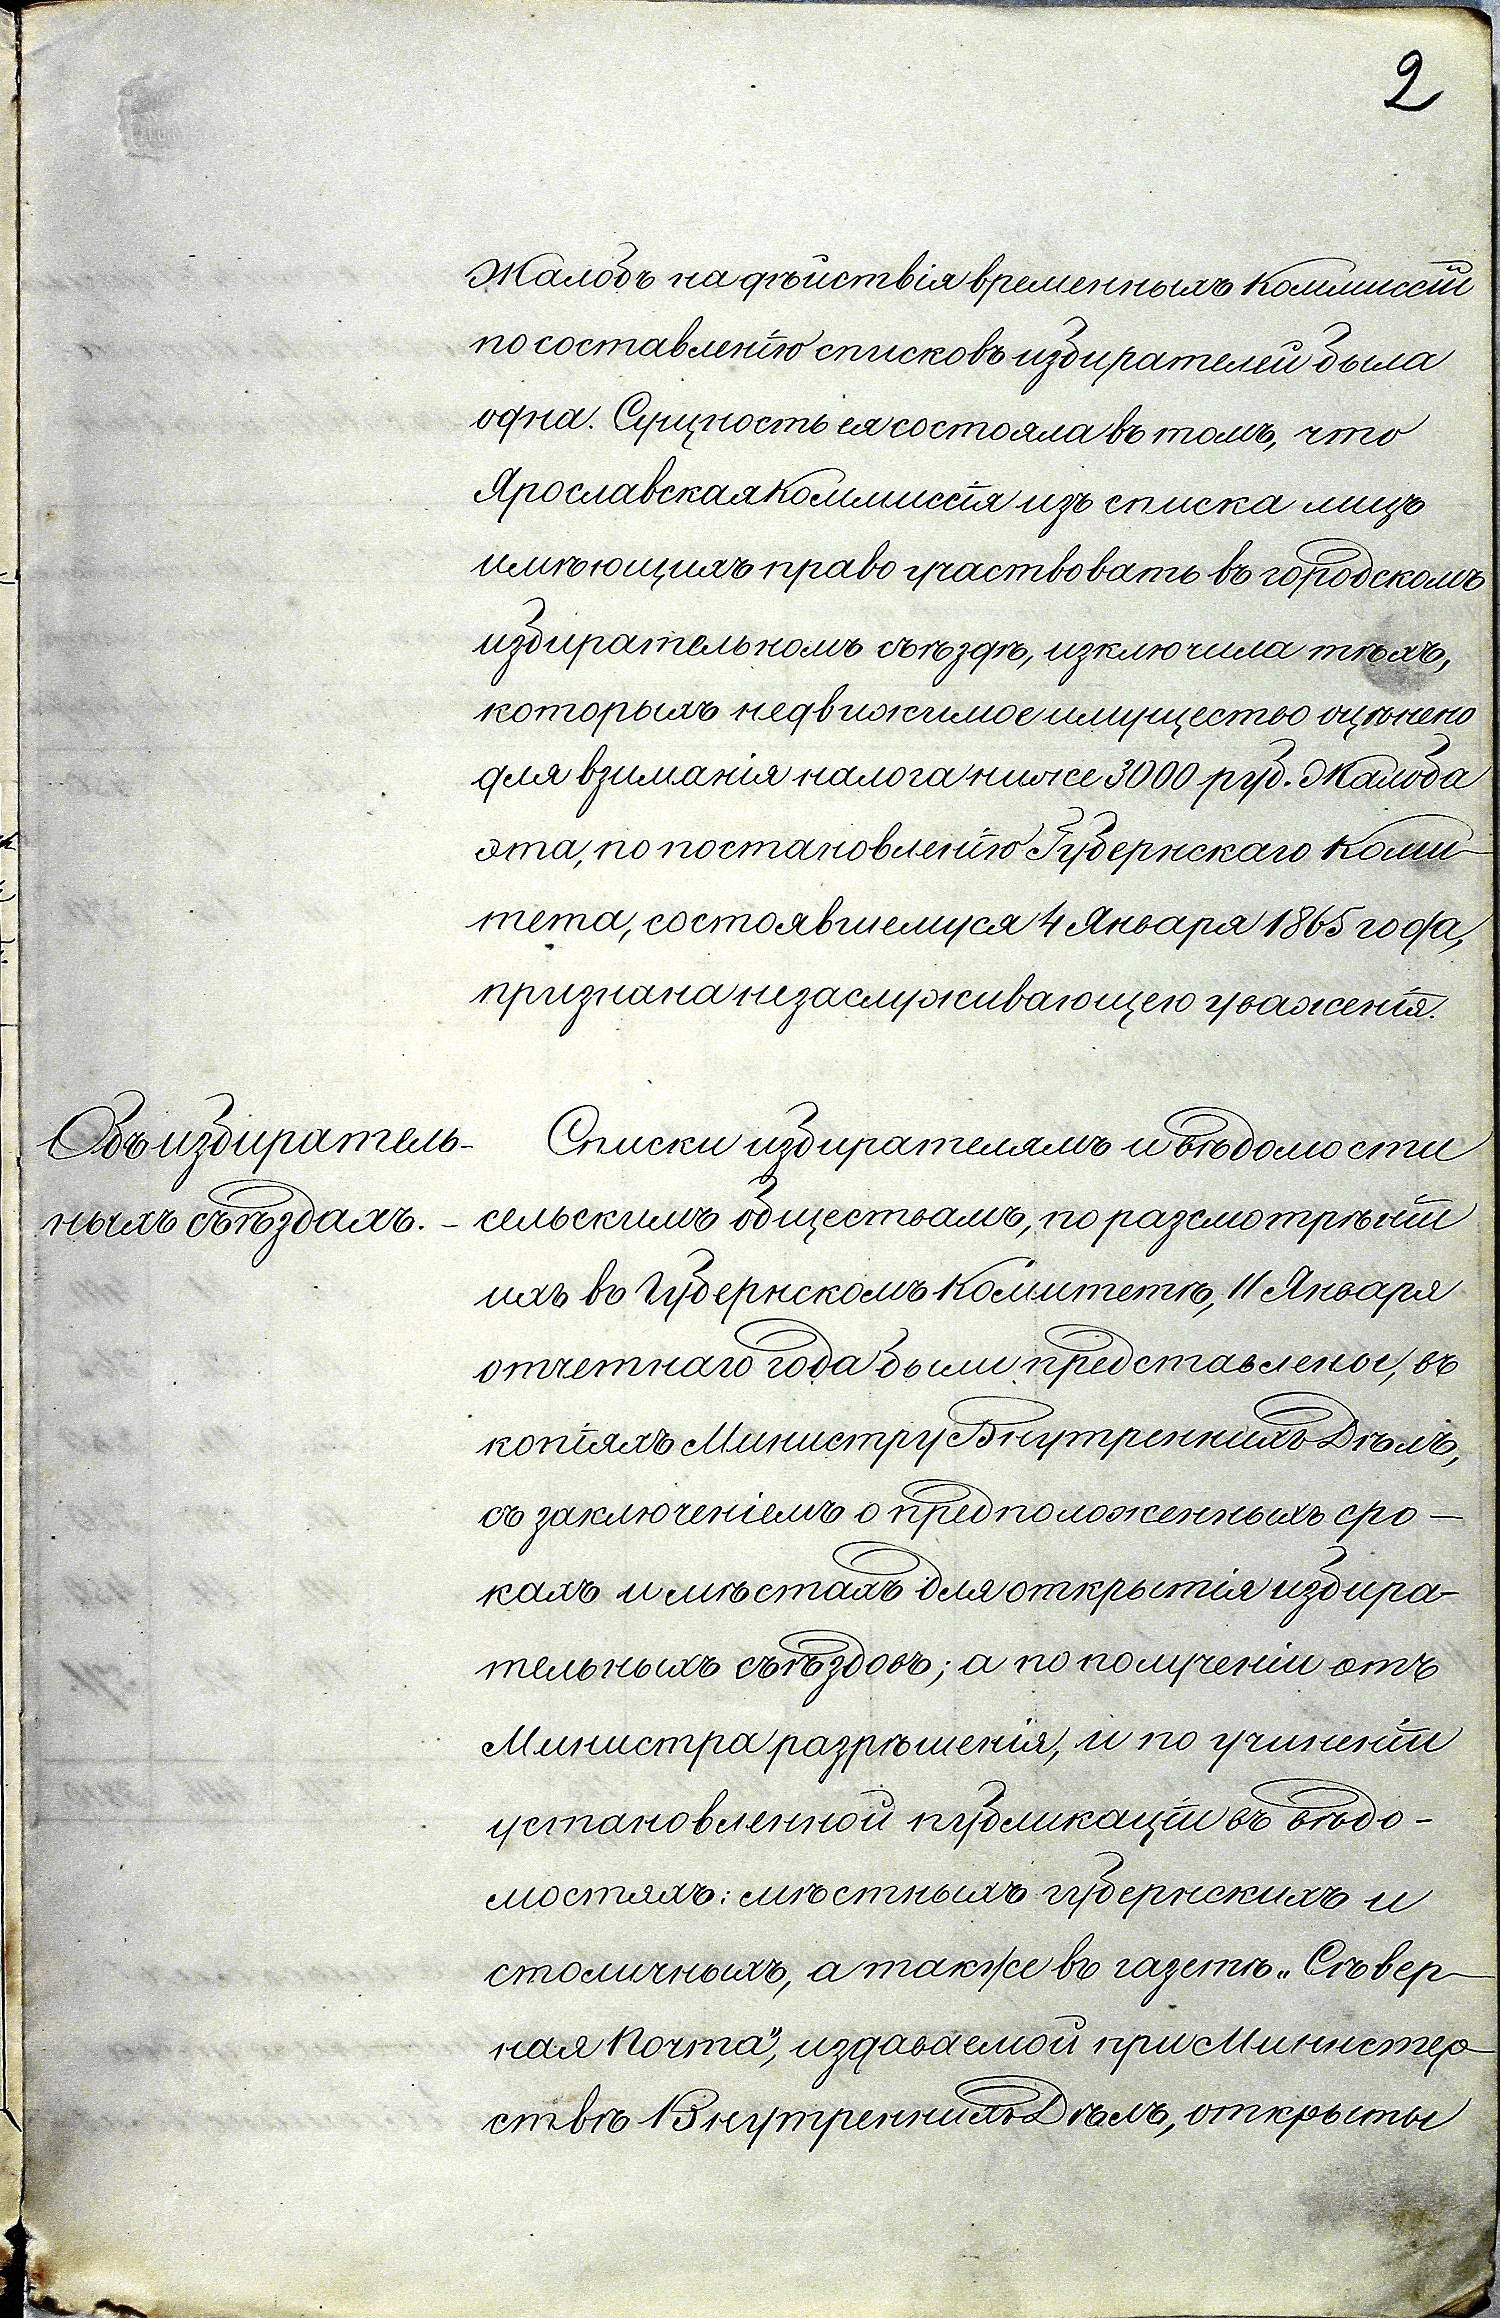 2
Жалобъ на дѣйствія временныхъ Коммиссій
по составленію списковъ избирателей была
одна. Сущность ея состояла въ томъ, что
Ярославская Коммиссія изъ списка лицъ
имѣющихъ право участвовать въ городскомъ
избирательномъ съѣздѣ, изключила тѣхъ,
которыхъ недвижимое имущество оцѣнено
для взиманія налога ниже 3000 руб. Жалоба
эта, по постановленію Губернскаго Коми-
тета, состоявшемуся 4 Января 1865 года,
признана незаслуживающею уваженія.
Объ избиратель-
ныхъ съѣздахъ. -
Списки избирателямъ и вѣдомости
сельскимъ обществамъ, по разсмотрѣніи
ихъ въ Губернскомъ Комитетѣ, 11 Января
отчетнаго года были представлены, въ
копіяхъ Министру Внутреннихъ Дѣлъ,
съ заключеніемъ о предположенныхъ сро-
кахъ и мѣстахъ для открытія избира-
тельныхъ съѣздовъ; а по полученіи отъ
Министра разрѣшенія, и по учиненіи
установленной публикаціи въ вѣдо-
мостяхъ: мѣстныхъ губернскихъ и
столичныхъ, а также въ газетѣ „Сѣвер-
ная Почта", издаваемой при Министер-
ствѣ Внутреннихъ Дѣлъ, открыты